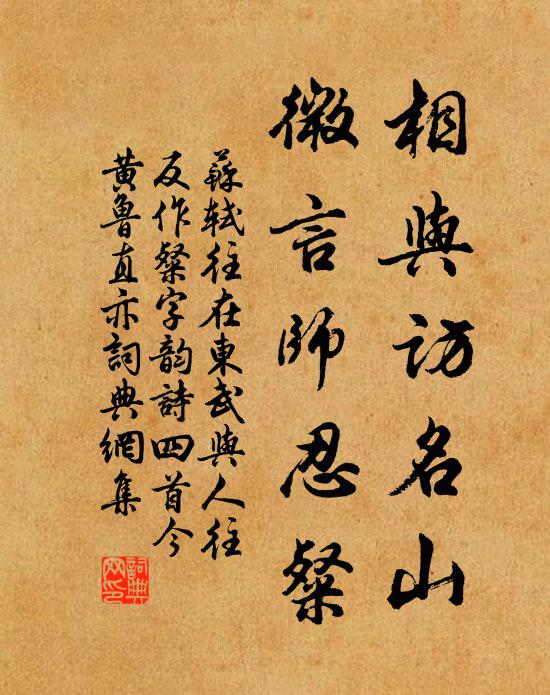 相與訪名山
微言師忍粲
蘇軾往在東武與人往
反作粲字韵詩四首今
黄魯直亦詞典網集
詞典网印